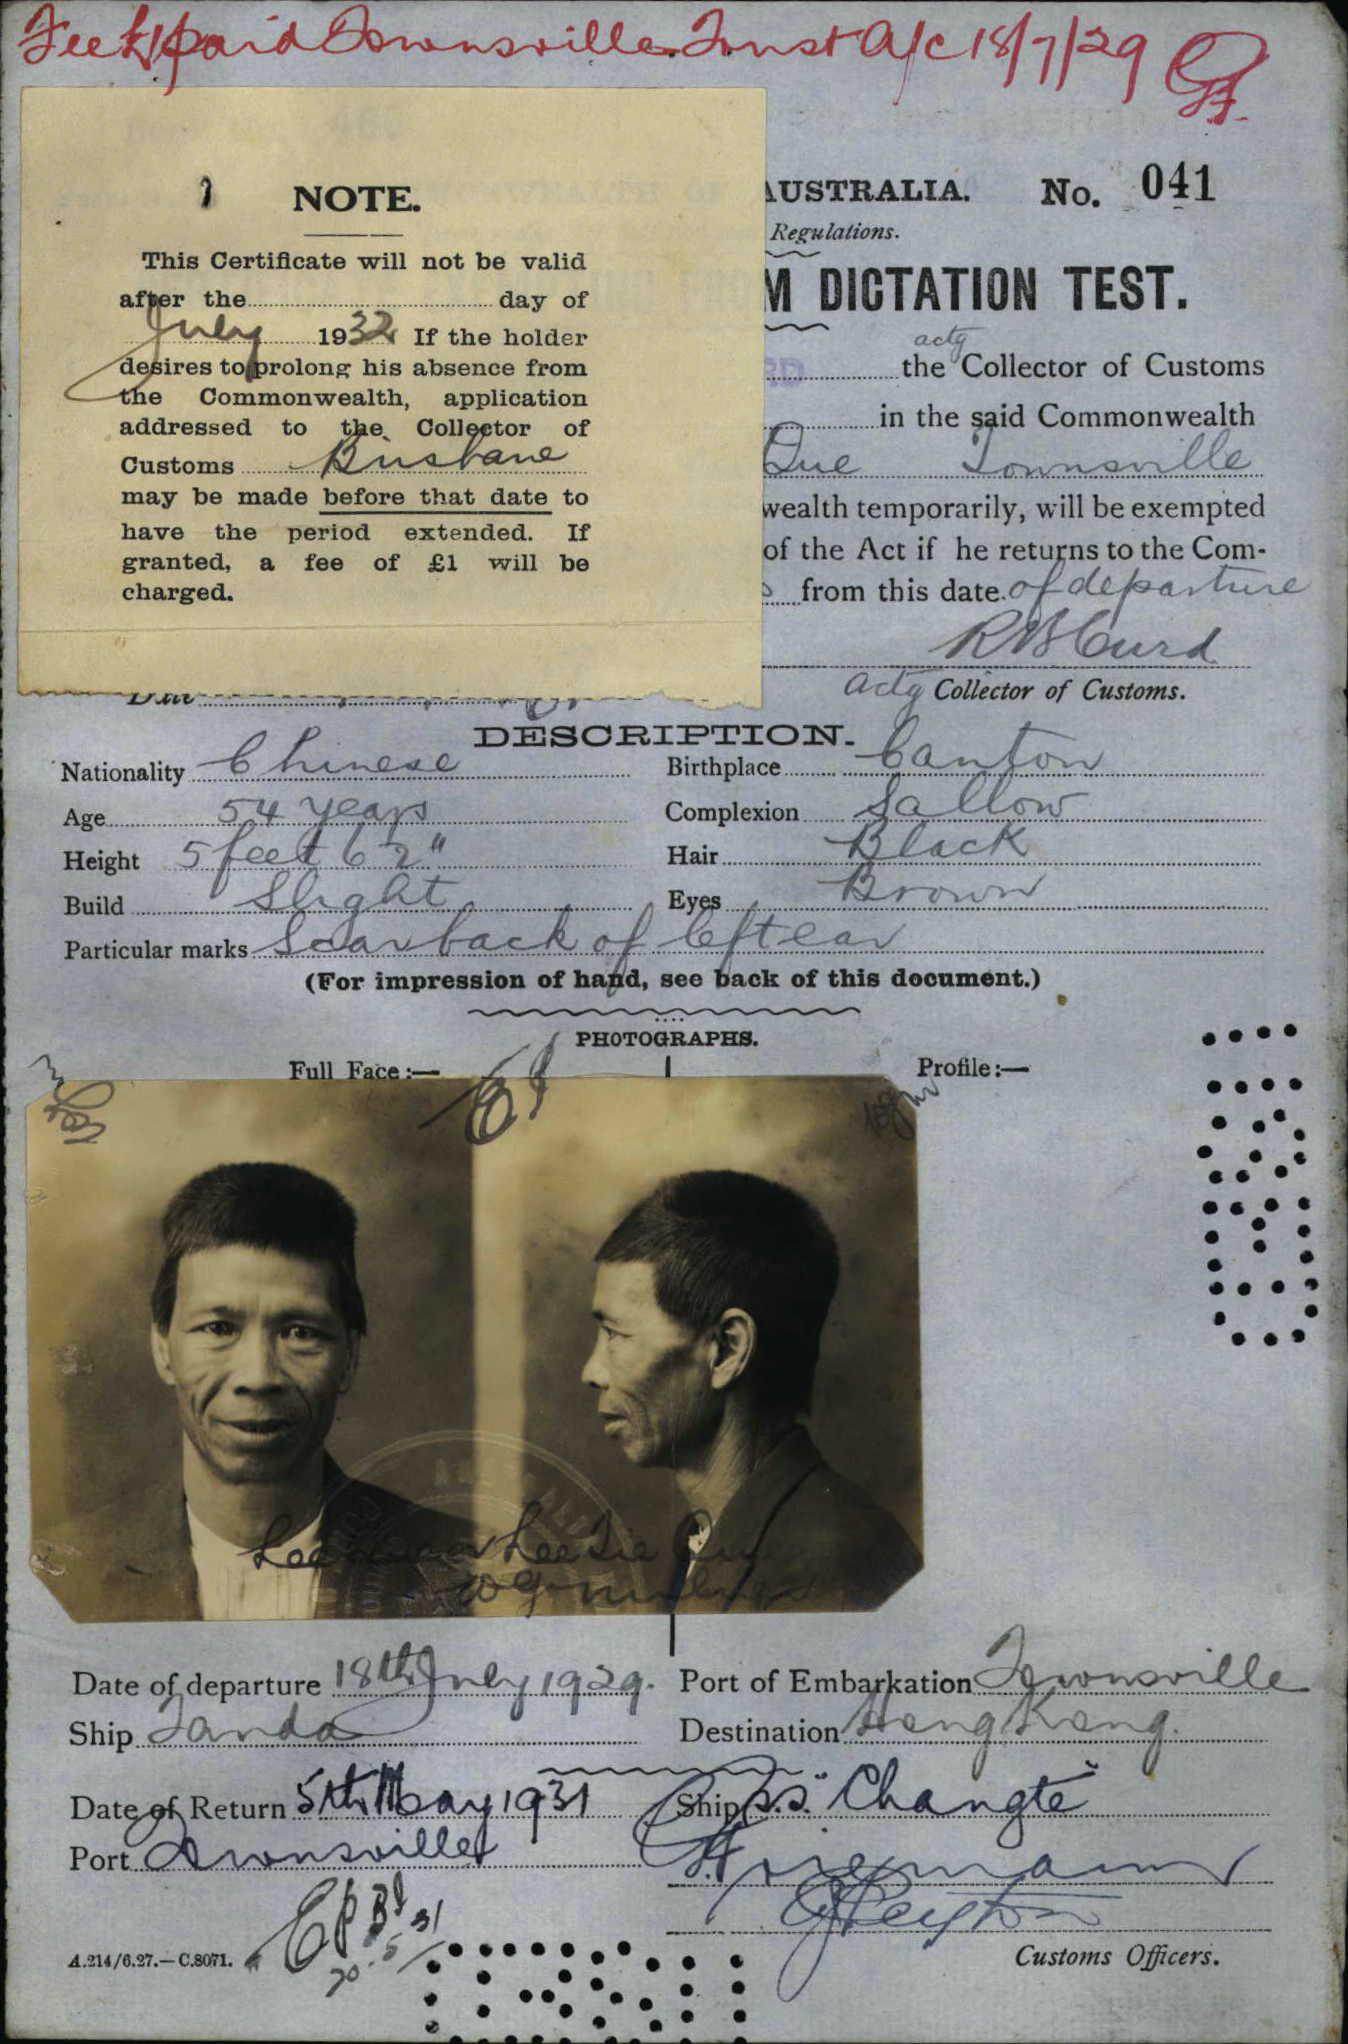 Fee £1 paid Townsville Trust A/c 18/7/29
NOTE.
This Certificate will not be valid
after the day of
July 1932 If the holder
desires to prolong his absence from
the Commonwealth, application
addressed to the Collector of
Customs Brisbane
may be made before that date to
have the period extended. If
granted, a fee of £1 will be
charged.
AUSTRALIA. No. 041
Regulations.
M DICTATION TEST.
actg
RD the Collector of Customs
in the said Commonwealth
Que Townsville
wealth temporarily, will be exempted
of the Act if he returns to the Com-
from this date of departure
R B Curd
actg Collector of Customs.
Date
DESCRIPTION.
Nationality Chinese Birthplace Canton
Age 54 years Complexion Sallow
Height 5 feet 6 2" Hair Black
Build Slight Eyes Brown
Particular marks Scar back of left ear
(For impression of hand, see back of this document.)
PHOTOGRAPHS.
Full Face:— Profile:—
Lee Sie Que
Date of departure 18th July 1929. Port of Embarkation Townsville
Ship Tanda Destination Hong Kong.
Date of Return 5th May 1931 Ship S.S. "Changte"
Port Townsville
20.5.31
A.214/6.27.—C.8071.
Customs Officers.